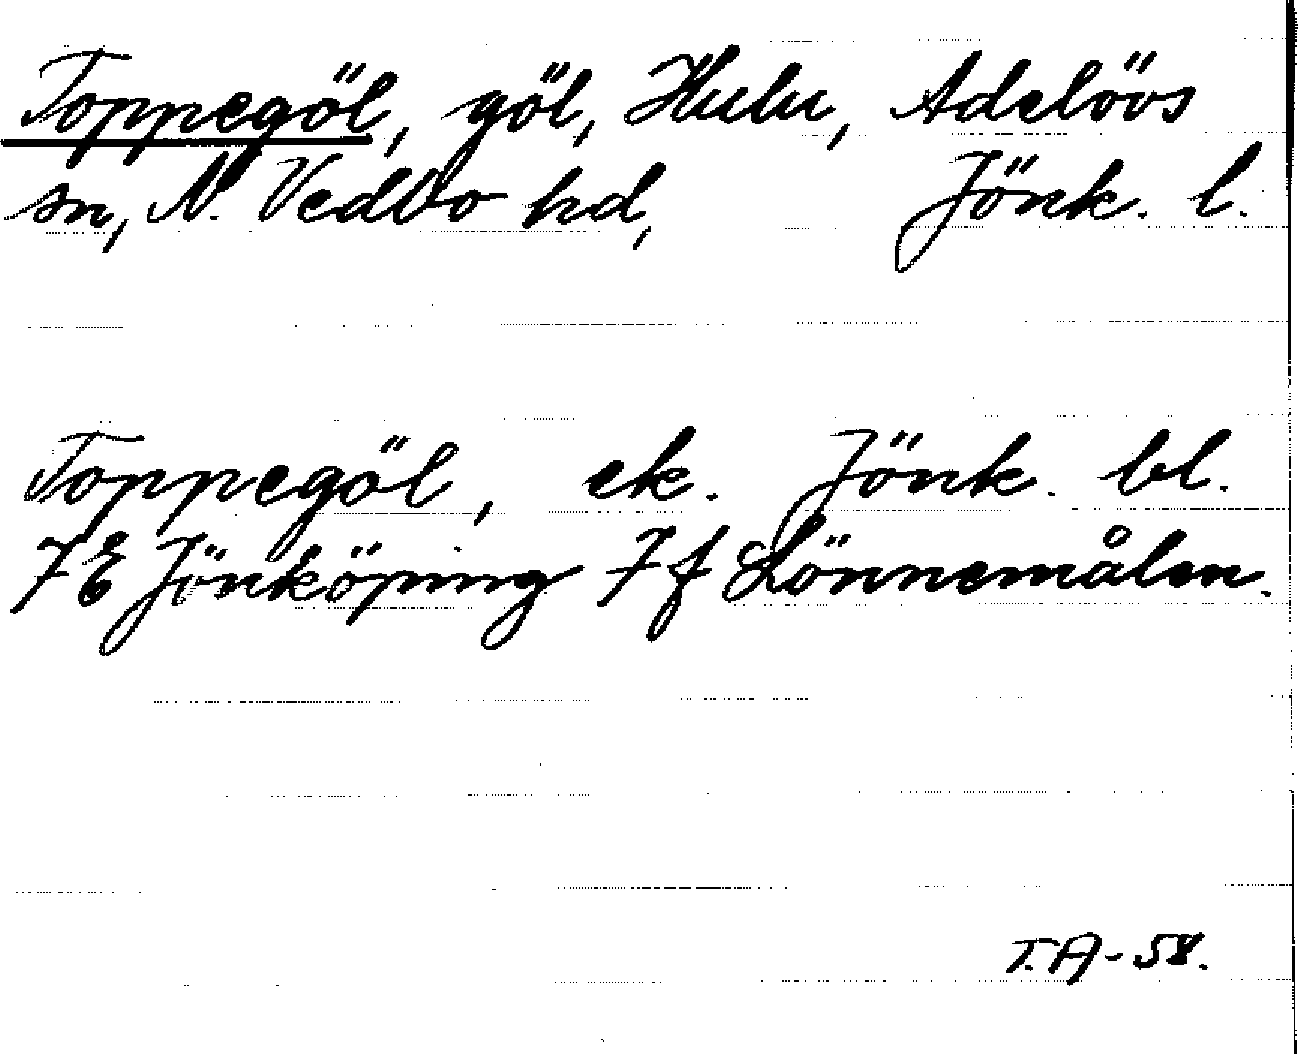 Toppegöl, göl, Hulu, Adelövs
sn, N. Vedbo hd, Jönk. l.
Toppegöl, ek. Jönk. bl.
7 E Jönköping 7 f Lönnemålen.
T.A-58.